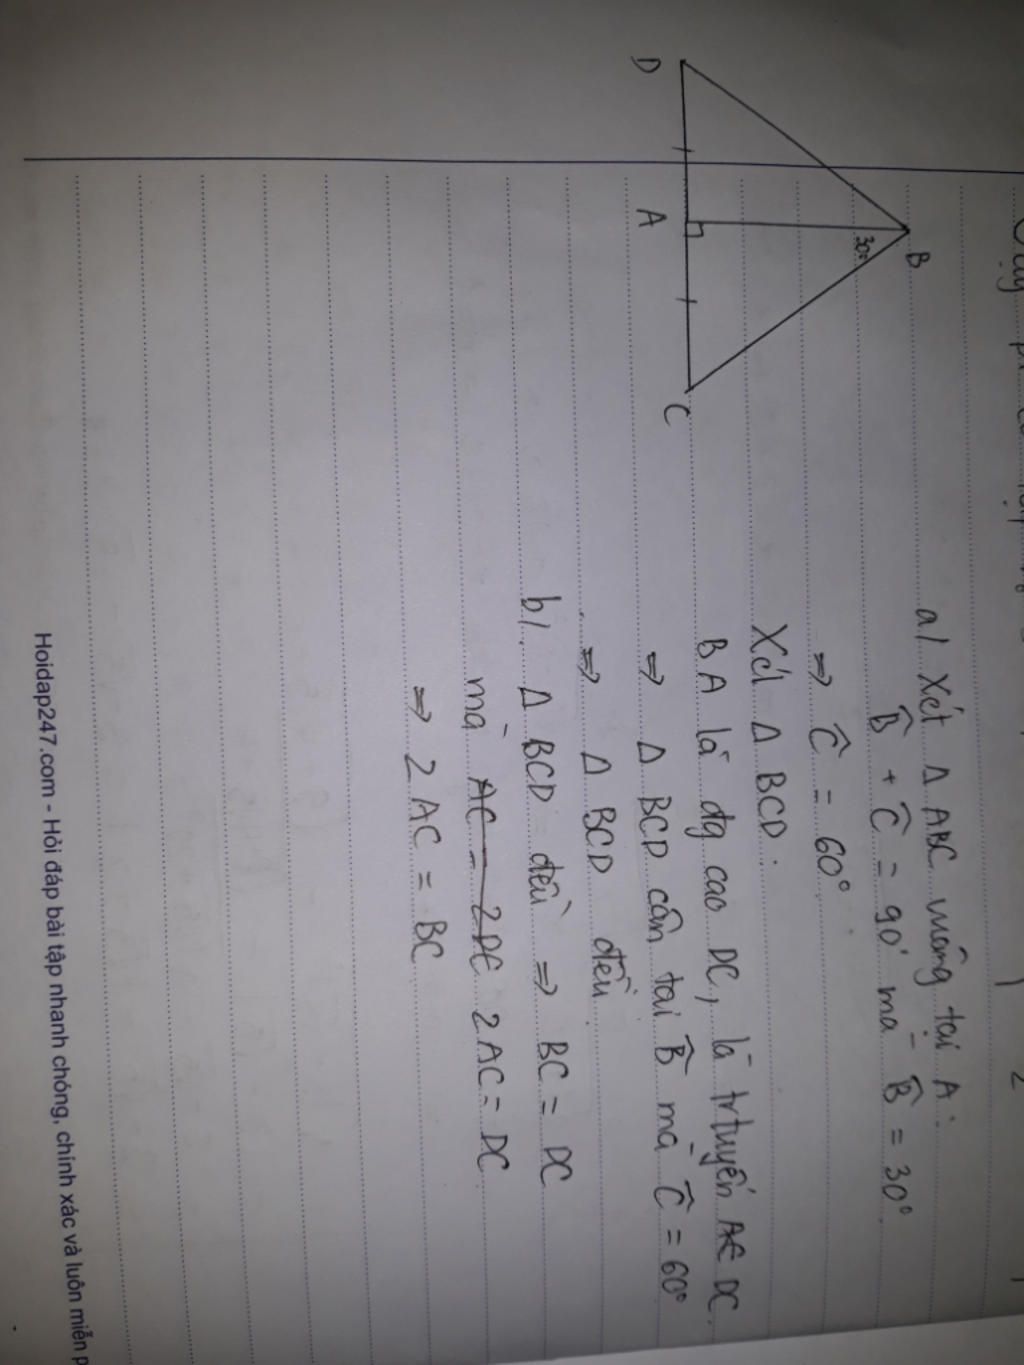 D
A
C
B
30°
a/ Xét Δ ABC vuông tại A:
B̂ + Ĉ = 90° mà B̂ = 30°
=> Ĉ = 60°
Xét Δ BCD:
BA là đg cao DC, là tr tuyến DC
=> Δ BCD cân tại B̂ mà Ĉ = 60°
=> Δ BCD đều
b/ Δ BCD đều => BC = DC
mà 2AC = DC
=> 2 AC = BC
Hoidap247.com - Hỏi đáp bài tập nhanh chóng, chính xác và luôn miễn p